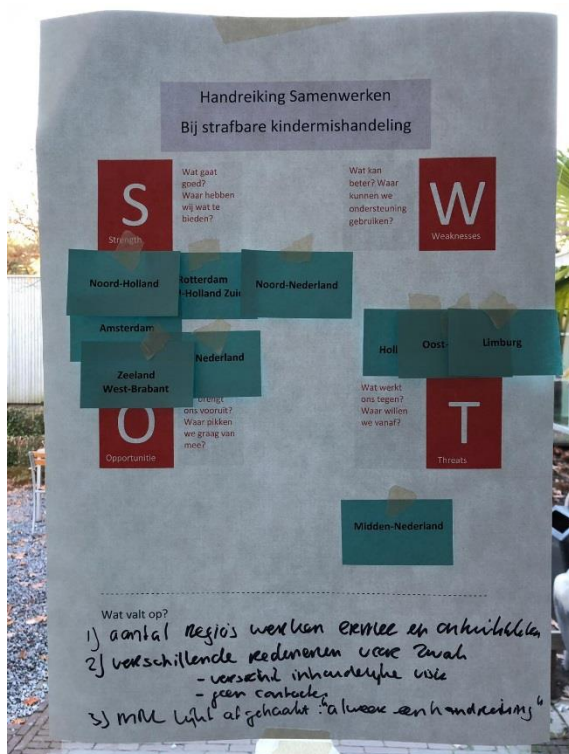 Handreiking Samenwerken
Bij strafbare kindermishandeling
S
Strength
Wat gaat
goed?
Waar hebben
wij wat te
bieden?
Wat kan
beter? Waar
kunnen we
ondersteuning
gebruiken?
W
Weaknesses
Noord-Holland
Rotterdam
-Holland Zuid
Noord-Nederland
Amsterdam
Nederland
Zeeland
West-Brabant
Holl
Oost-
Limburg
O
Opportunitie
brengt
ons vooruit?
Waar pikken
we graag van
mee?
Wat werkt
ons tegen?
Waar willen
we vanaf?
T
Threats
Midden-Nederland
Wat valt op?
1) aantal regio's werken ermee en ontwikkelen
2) verschillende redenen voor zwak
- verschil inhoudelijke visie
- geen contacten
3) MNL lijkt afgehaakt: "alweer een handreiking"